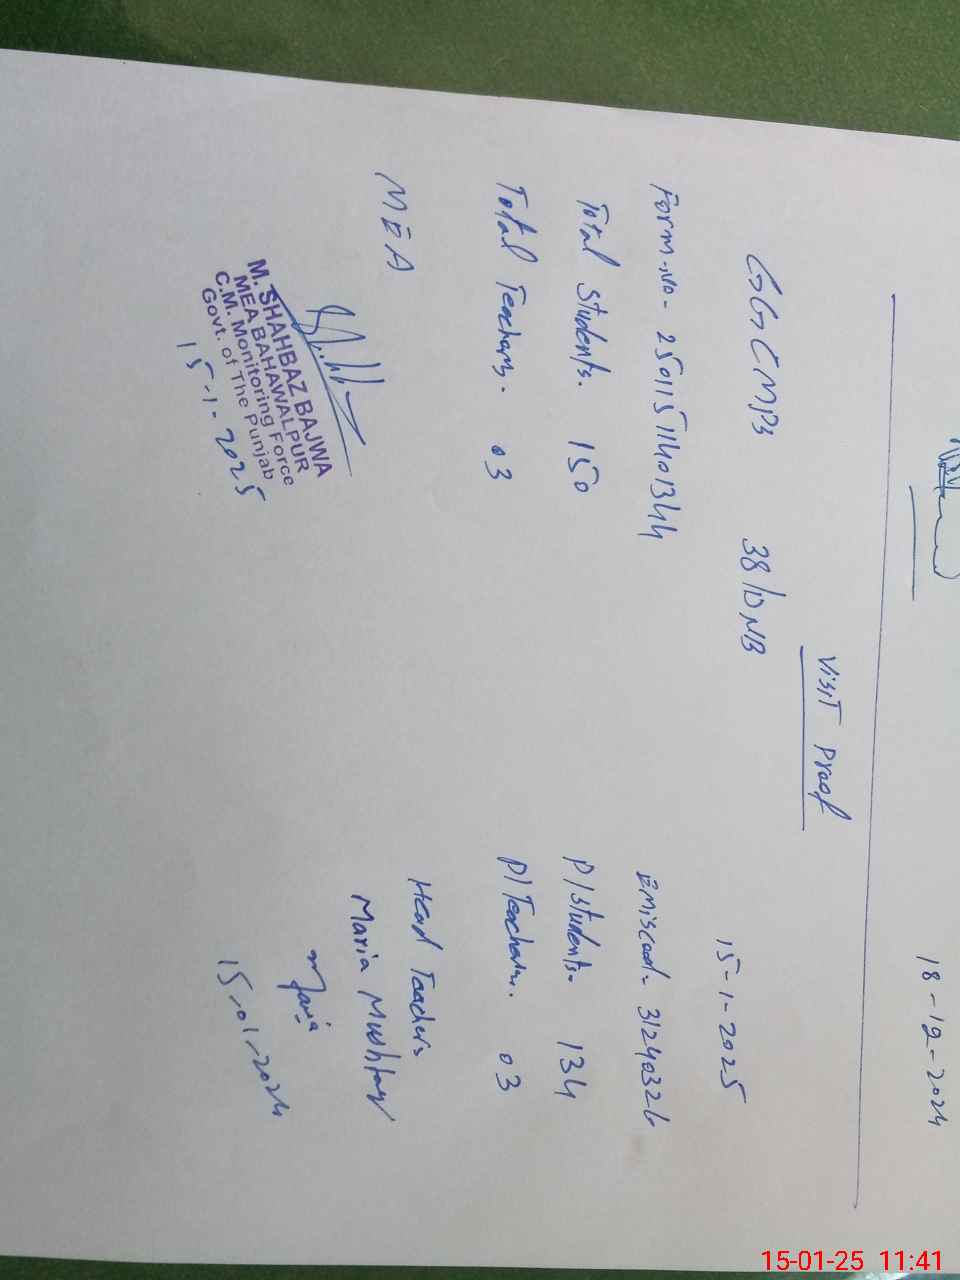 18-12-2024
Visit Proof
GGCMPS 38/DNB 15-1-2025
Form.No- 25011511401344 Emiscod- 31240326
Total Students. 150 P/Students- 134
Total Teachers. 03 P/Teachers. 03
MEA Head Teachers
Maria Mushtaq
Maria
15-01-2024
M. SHAHBAZ BAJWA
MEA BAHAWALPUR
C.M. Monitoring Force
Govt. of The Punjab
15-1-2025
15-01-25 11:41